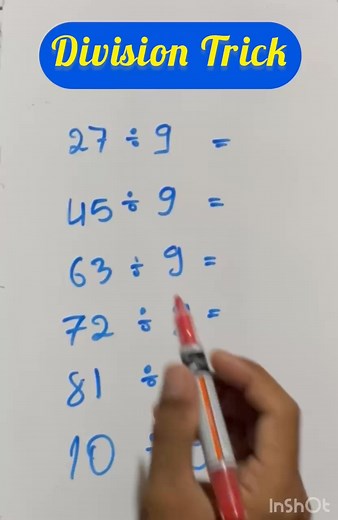 Division Trick
27 ÷ 9 =
45 ÷ 9 =
63 ÷ 9 =
72 ÷ =
81 ÷
10 ÷
InShOt